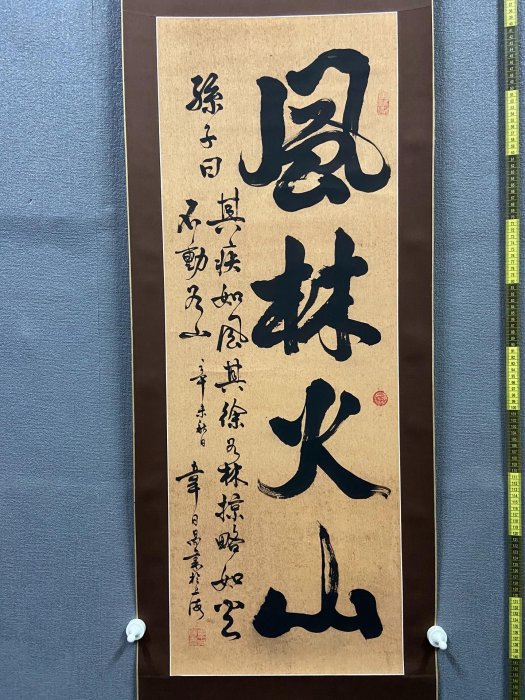 風林火山
孫子曰
其疾如風其徐若林掠略如火
不動若山
辛未秋日
於上海